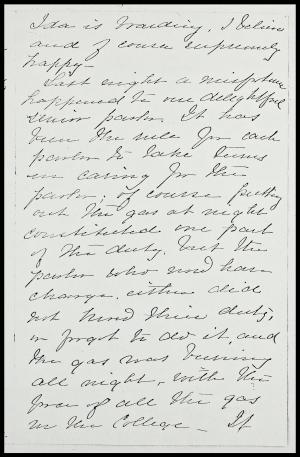 Ida is boarding, I believe
and of course supremely
happy.
Last night a misfortune
happened to our delightful
senior parlor. It has
been the rule for each
parlor to take turns
in caring for the
parlor, of course putting
out the gas at night
constituted one part
of the duty. but the
parlor who now have
charge, either did
not know their duty,
or forgot to do it, and
the gas was burning
all night, with the
force of all the gas
in the College - It